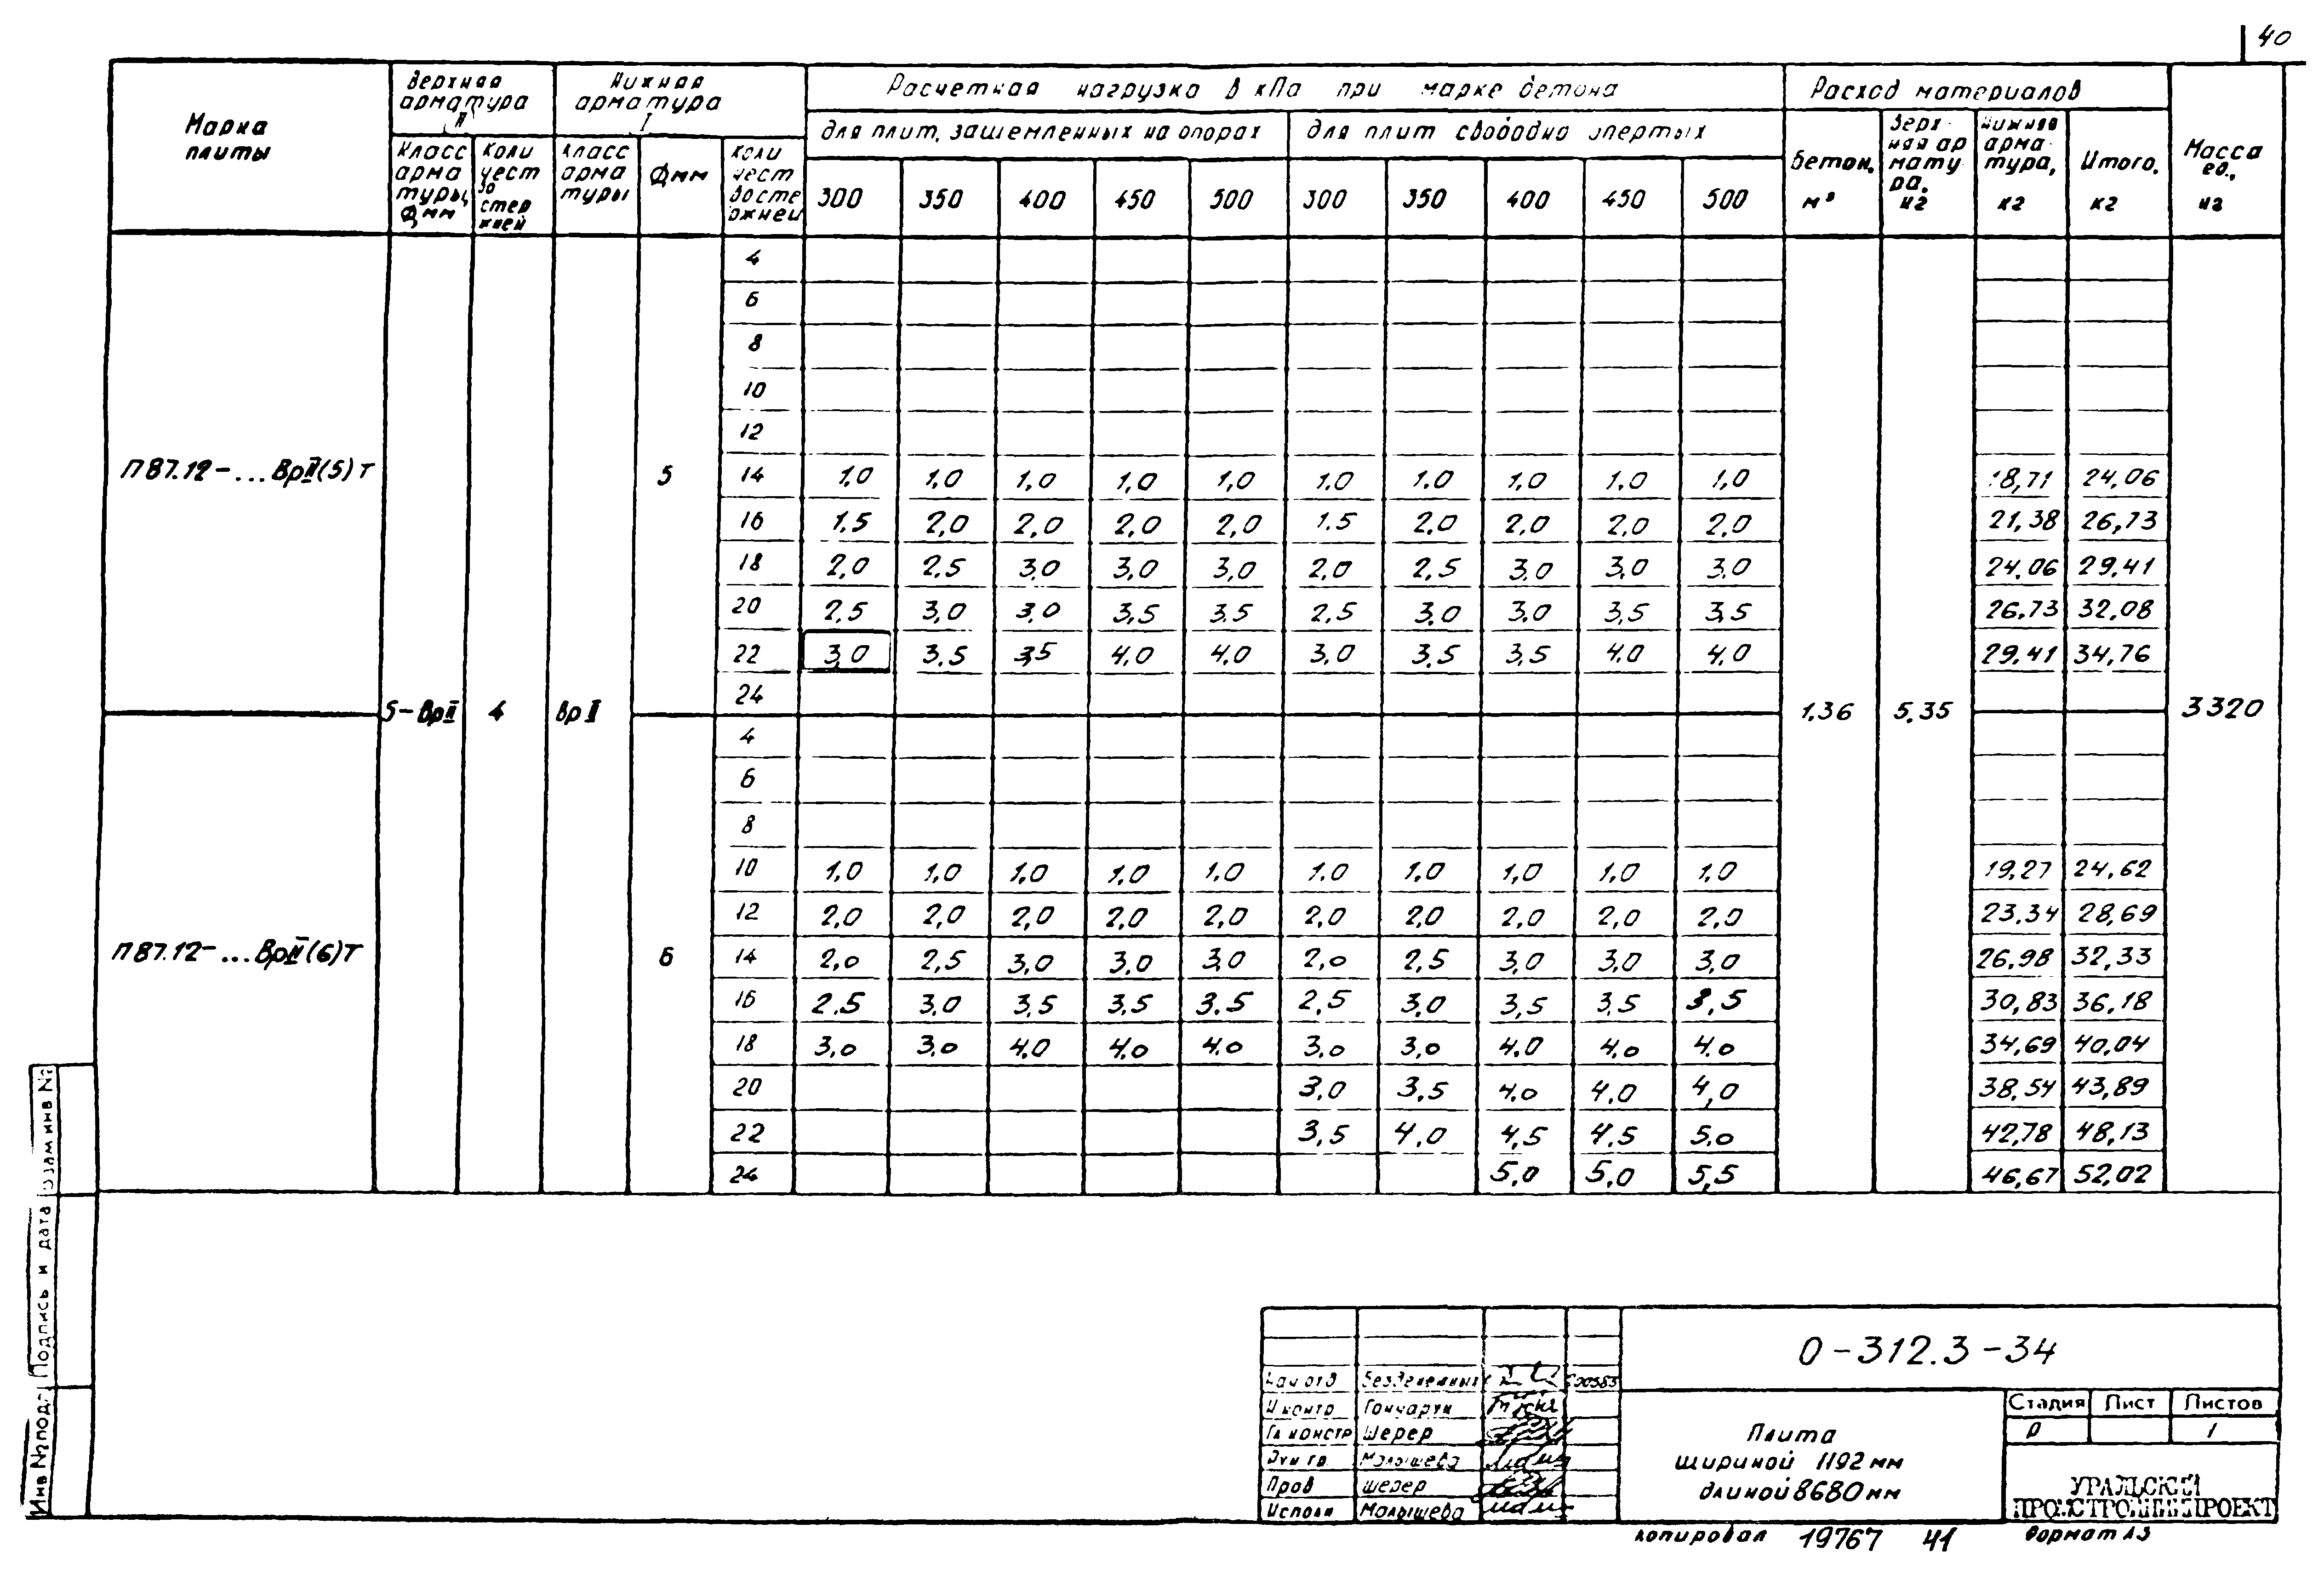 40
Марка плиты
Верхняя арматура II
Нижняя арматура I
Расчетная нагрузка в кПа при марке бетона
Расход материалов
Масса ед., кг
для плит, защемленных на опорах
для плит свободно опертых
Класс арматуры, Ф мм
Количество стержней
Класс арматуры
Ф мм
Количество стержней
300 350 400 450 500 300 350 400 450 500
Бетон, м³
Верхняя арматура, кг
Нижняя арматура, кг
Итого, кг
4
6
8
10
12
П 87.12-... ВрII(5)т
5
14 1,0 1,0 1,0 1,0 1,0 1,0 1,0 1,0 1,0 1,0 18,71 24,06
16 1,5 2,0 2,0 2,0 2,0 1,5 2,0 2,0 2,0 2,0 21,38 26,73
18 2,0 2,5 3,0 3,0 3,0 2,0 2,5 3,0 3,0 3,0 24,06 29,41
20 2,5 3,0 3,0 3,5 3,5 2,5 3,0 3,0 3,5 3,5 26,73 32,08
22 3,0 3,5 3,5 4,0 4,0 3,0 3,5 3,5 4,0 4,0 29,41 34,76
24
5-ВрII 4 ВрII 1,36 5,35 3320
4
6
8
10 1,0 1,0 1,0 1,0 1,0 1,0 1,0 1,0 1,0 1,0 19,27 24,62
12 2,0 2,0 2,0 2,0 2,0 2,0 2,0 2,0 2,0 2,0 23,34 28,69
П 87.12-... ВрII(6)т
6
14 2,0 2,5 3,0 3,0 3,0 2,0 2,5 3,0 3,0 3,0 26,98 32,33
16 2,5 3,0 3,5 3,5 3,5 2,5 3,0 3,5 3,5 3,5 30,83 36,18
18 3,0 3,0 4,0 4,0 4,0 3,0 3,0 4,0 4,0 4,0 34,69 40,04
20 3,0 3,5 4,0 4,0 4,0 38,54 43,89
22 3,5 4,0 4,5 4,5 5,0 42,78 48,13
24 5,0 5,0 5,5 46,67 52,02
Инв № подл Подпись и дата Взам инв №
0-312.3-34
Нач отд
Н контр Гончарук
Гл констр Шерер
Рук гр Малышева
Пров Шерер
Исполн Малышева
Плита
шириной 1192 мм
длиной 8680 мм
Стадия Лист Листов
Р 1
УРАЛЬСКИЙ
ПРОМСТРОЙНИИПРОЕКТ
Копировал 19767 41 Формат А3